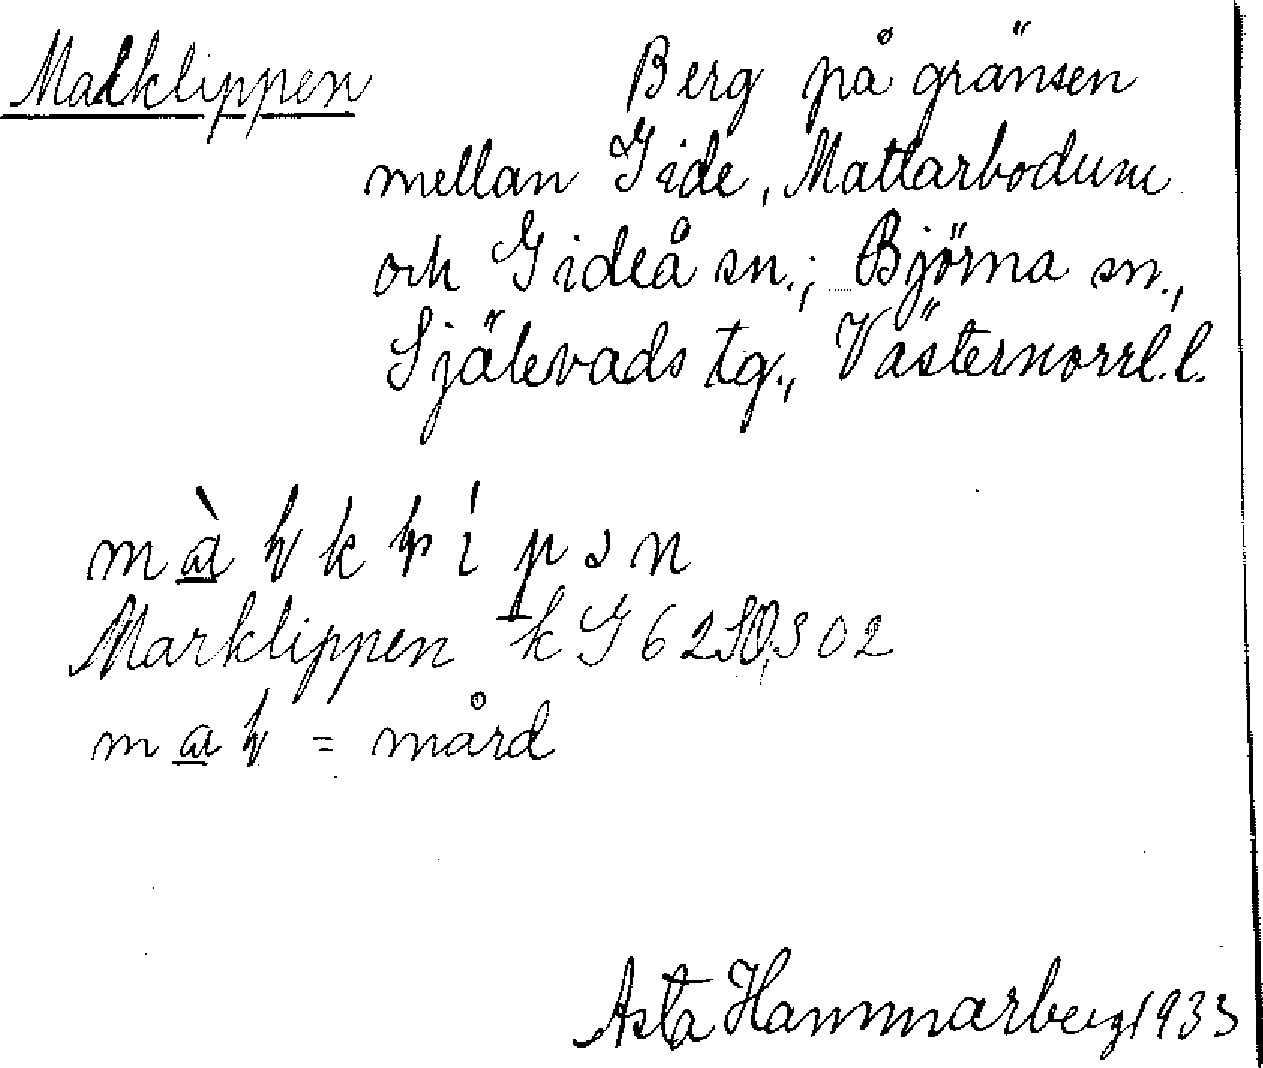 Malklippen Berg på gränsen
mellan Gide, Mattarbodum
och Gideå sn.; Björna sn.,
Själevads tg., Västernorrl.l.
Marklippen kG 6250,302
= mård
Asta Hammarberg 1933